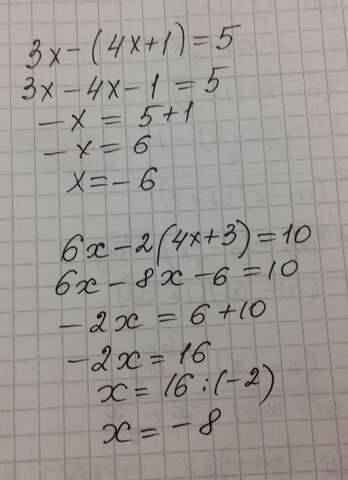 3x-(4x+1)=5
3x-4x-1=5
-x=5+1
-x=6
x=-6
6x-2(4x+3)=10
6x-8x-6=10
-2x=6+10
-2x=16
x=16:(-2)
x=-8